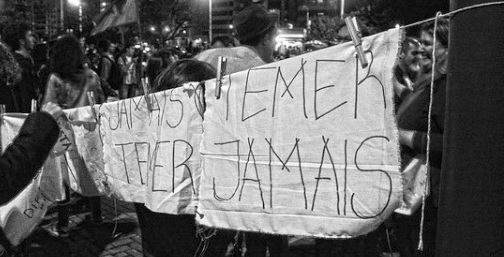 JAMAIS
TEMER
TEMER
JAMAIS